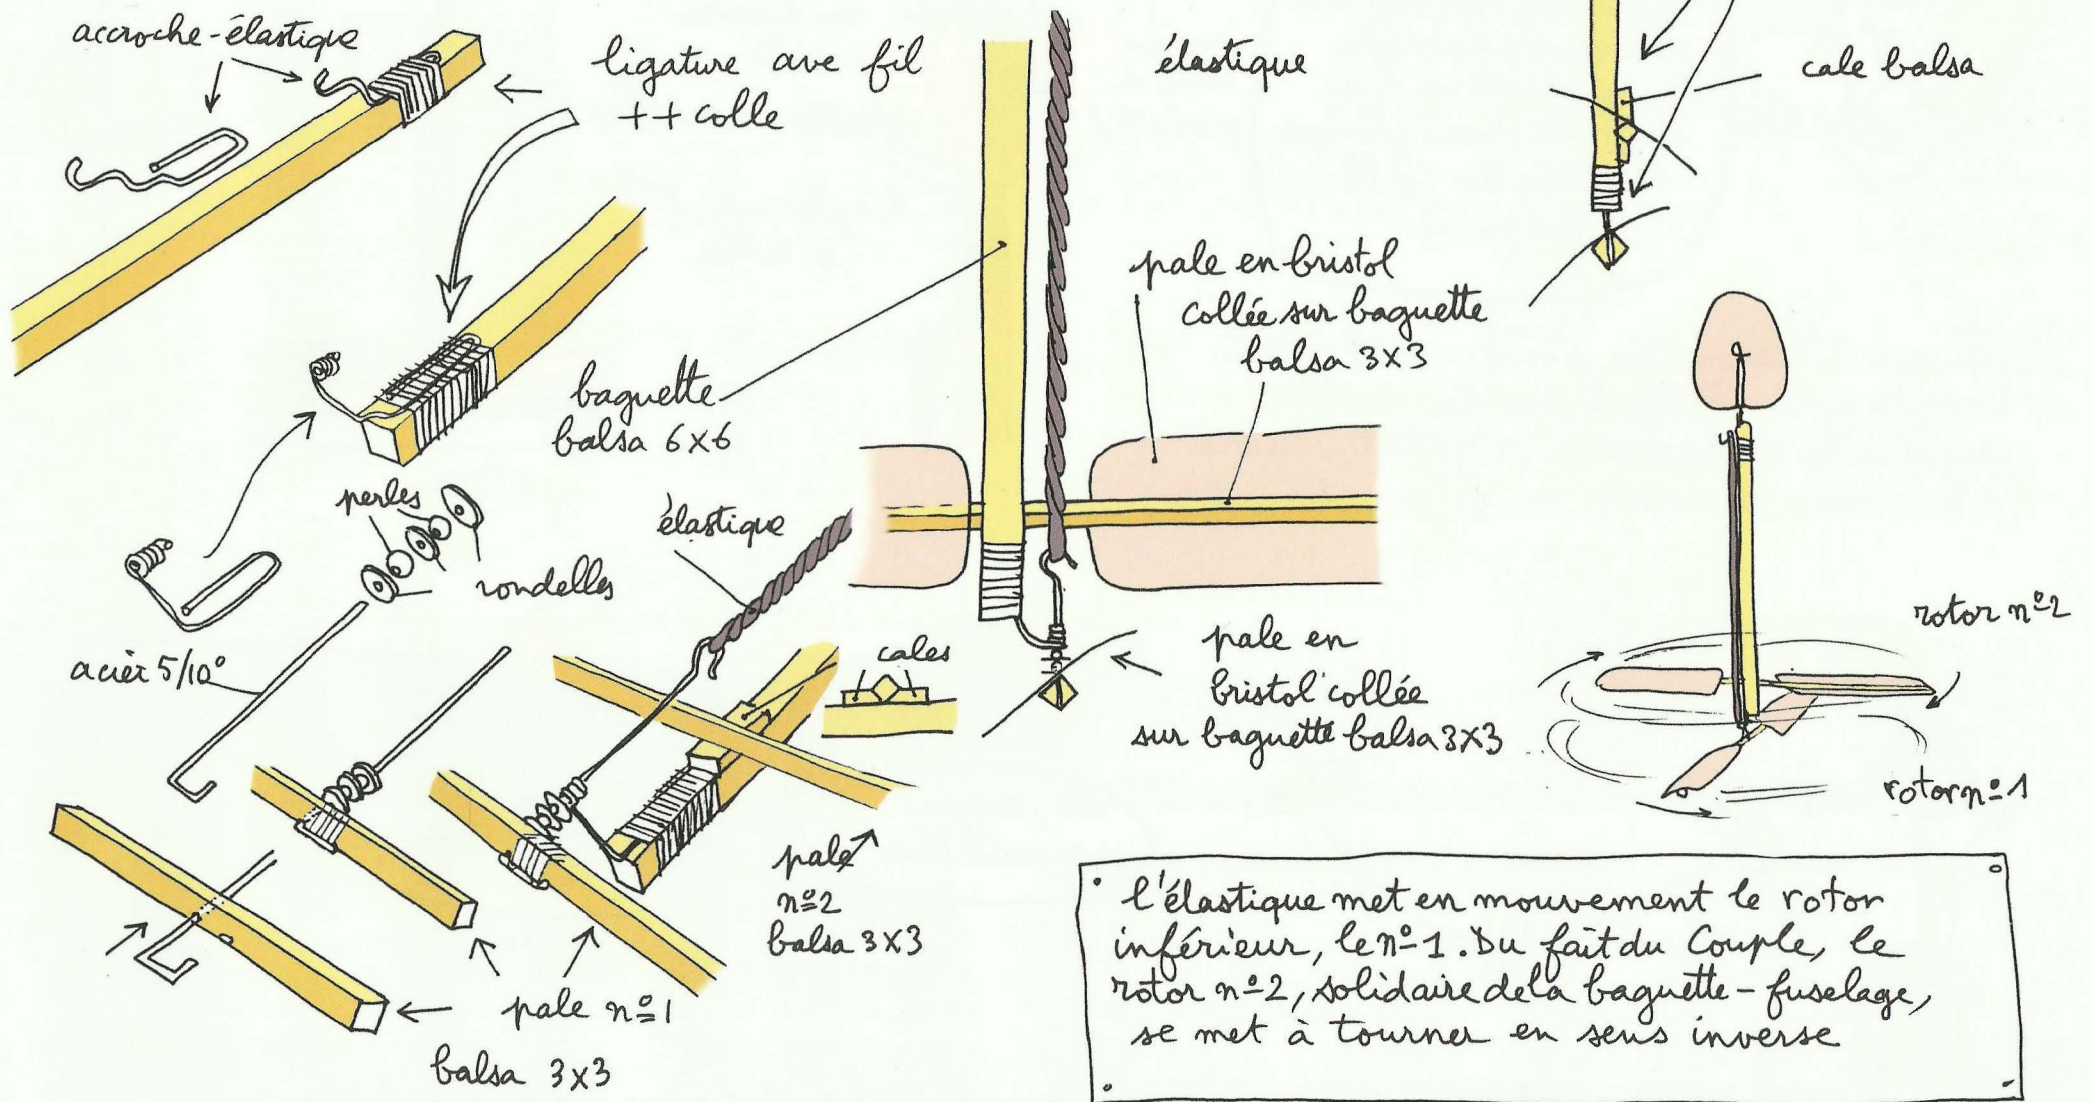 accroche-élastique
ligature ave fil
++ colle
élastique
cale balsa
pale en bristol
collée sur baguette
balsa 3x3
baguette
balsa 6x6
perles
rondelles
élastique
acier 5/10°
cales
pale en
bristol collée
sur baguette balsa 3x3
rotor nº2
rotor nº1
pale
nº2
balsa 3x3
pale nº1
balsa 3x3
l'élastique met en mouvement le rotor
inférieur, le nº1. Du fait du Couple, le
rotor nº2, solidaire de la baguette-fuselage,
se met à tourner en sens inverse